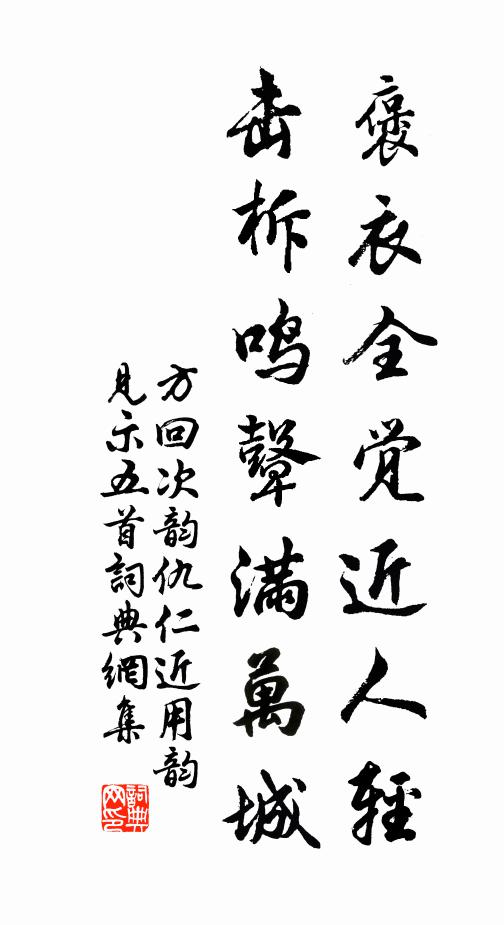 褒衣全觉近人輕
击柝鸣鼙满萬城
方回次韵仇仁近用韵
见示五首詞典網集
詞典网印